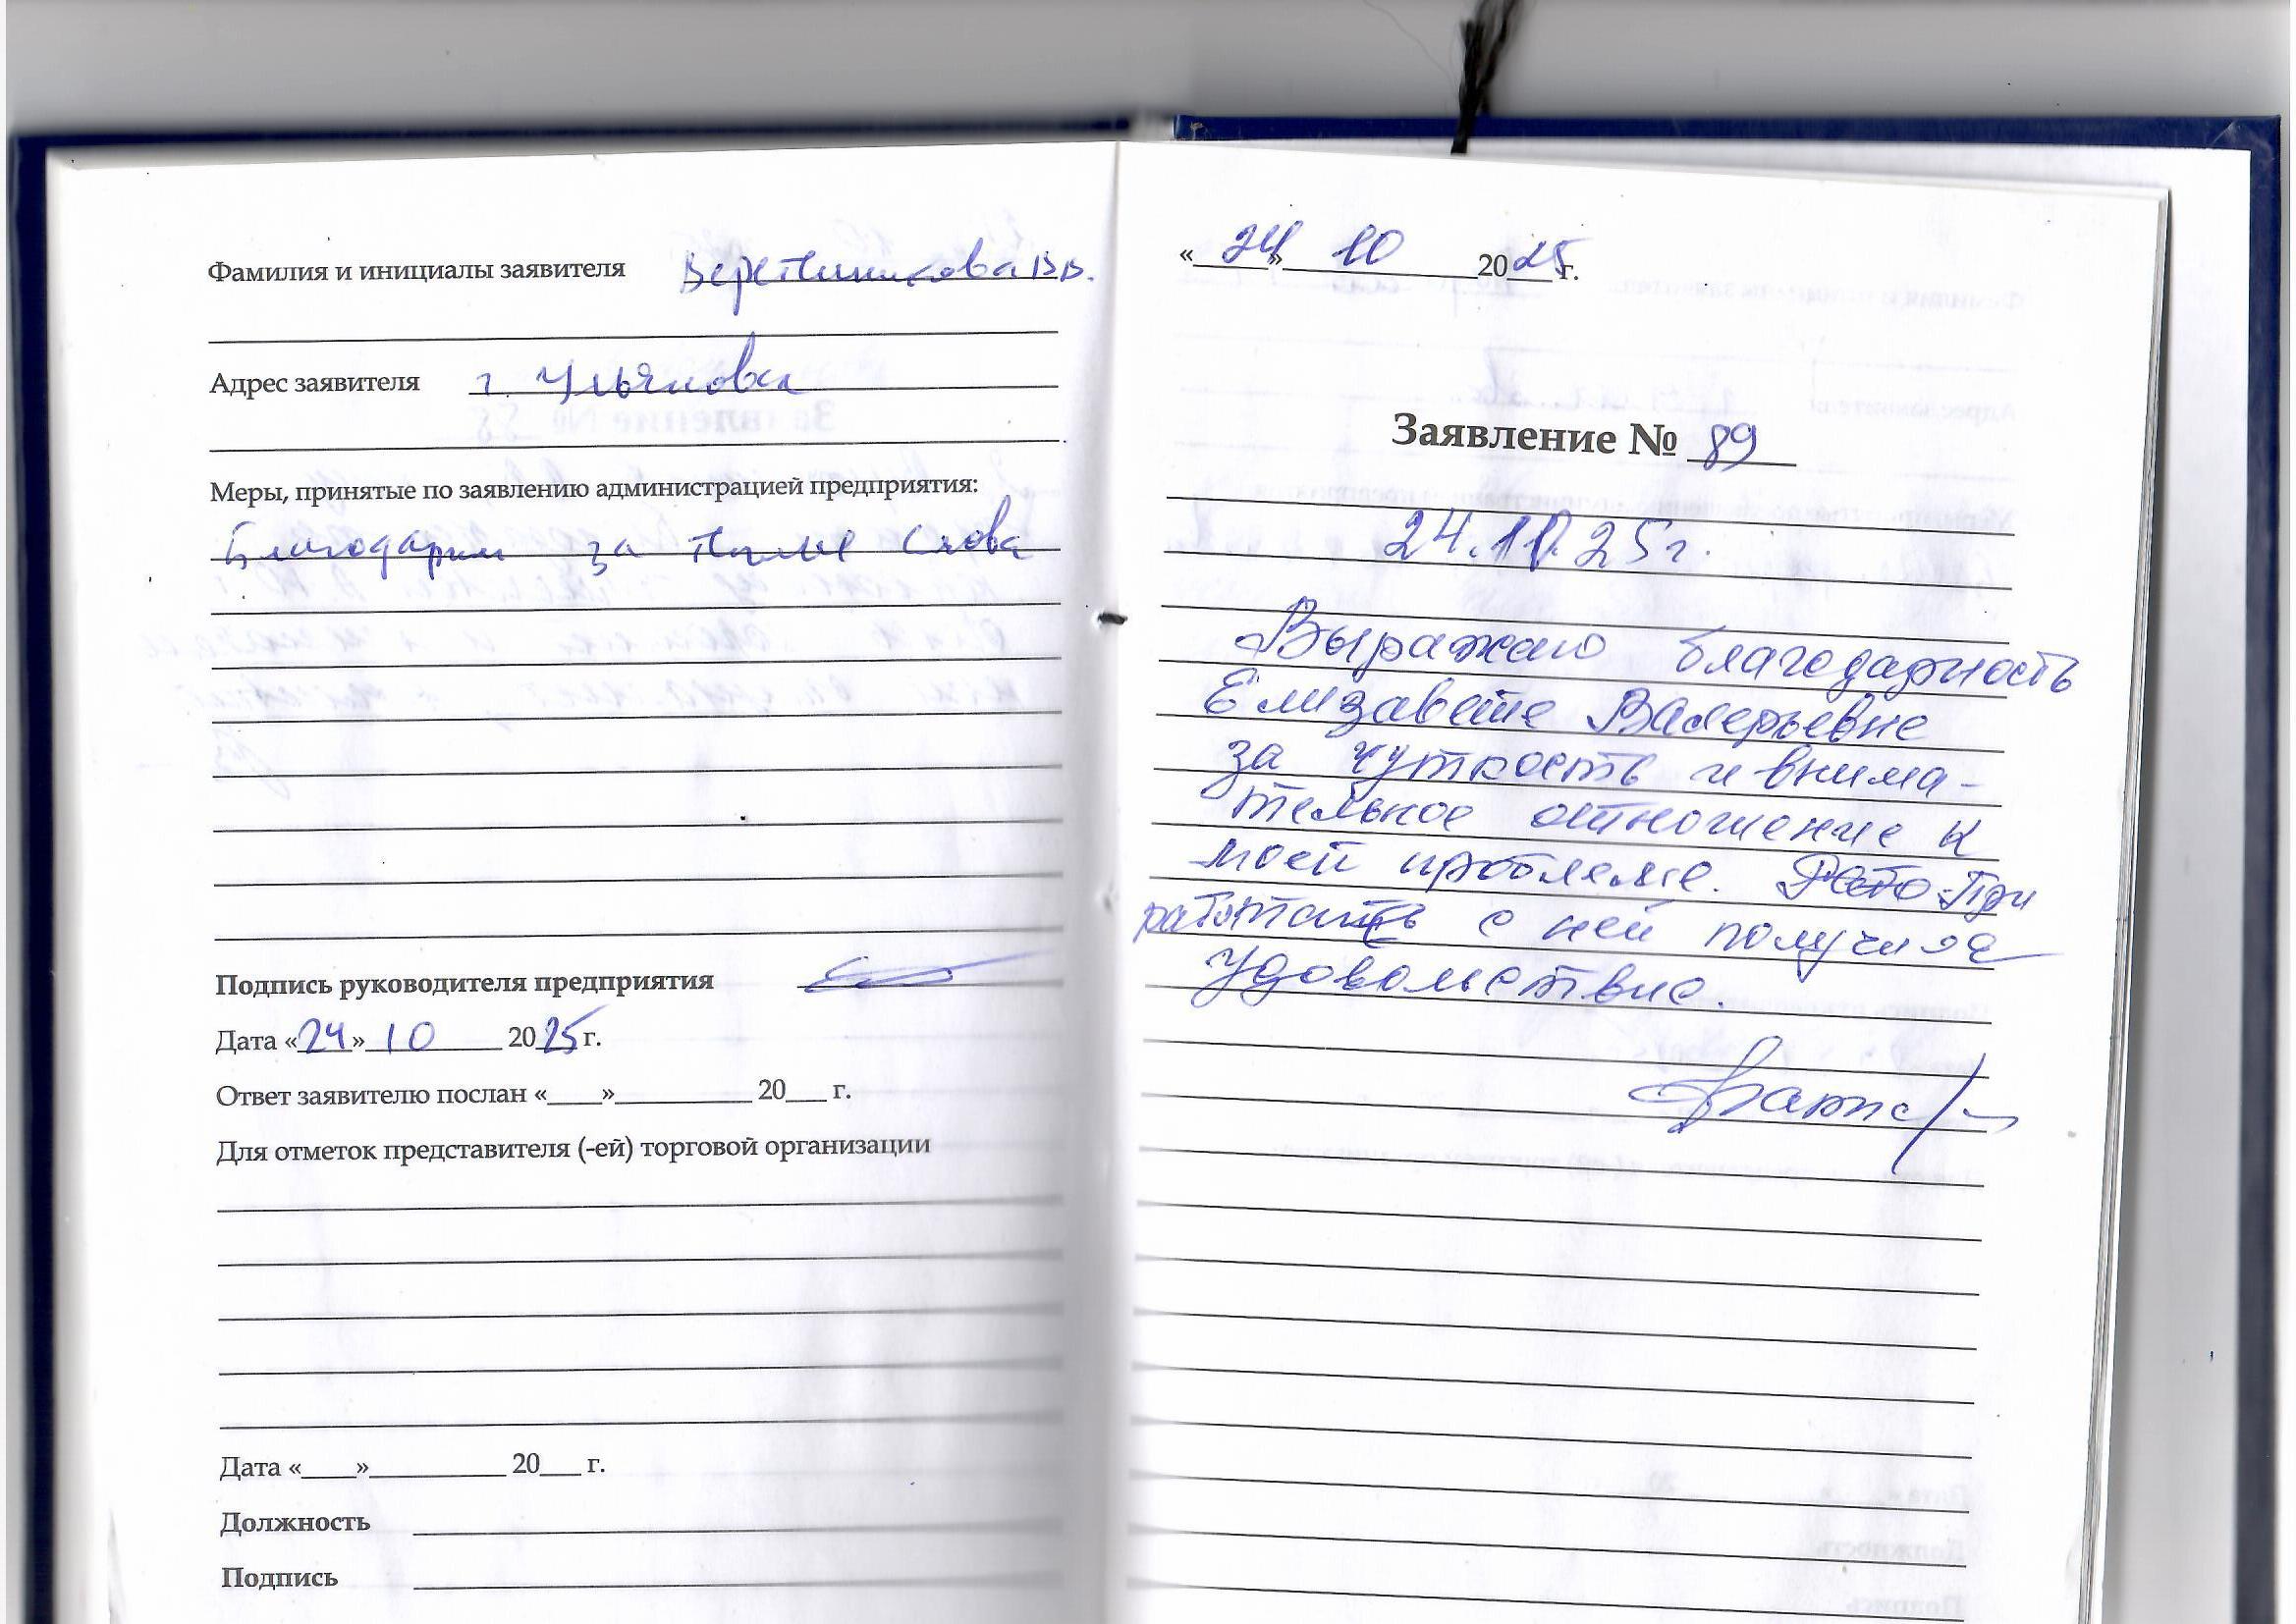 Фамилия и инициалы заявителя Веретенникова В.В.
Адрес заявителя г. Ульяновск
Меры, принятые по заявлению администрацией предприятия:
Благодарим за теплые слова
Подпись руководителя предприятия
Дата «24» 10 2025 г.
Ответ заявителю послан «___»__________ 20___ г.
Для отметок представителя (-ей) торговой организации
Дата «___»__________ 20___ г.
Должность
Подпись
«24» 10 2025 г.
Заявление № 89
24.10.25г.
Выражаю благодарность
Елизавете Валерьевне
за чуткость и внима-
тельное отношение к
моей проблеме. При
работать с ней получила
удовольствие.